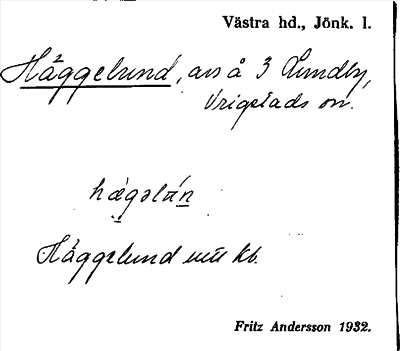 Västra hd., Jönk. l.
Häggelund, avs å 3 Lundby,
Vrigstads sn.
hǽgəlún
Häggelund utt kb.
Fritz Andersson 1932.